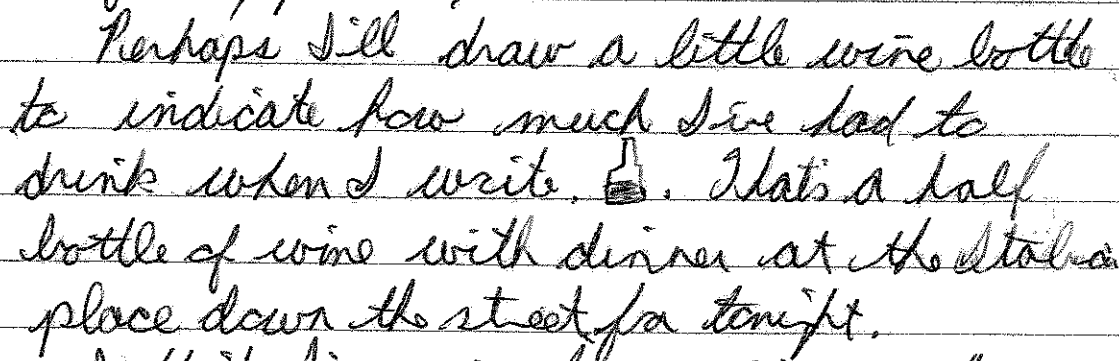 Perhaps I'll draw a little wine bottle
to indicate how much I've had to
drink when I write. . That's a half
bottle of wine with dinner at the Italian
place down the street for tonight.